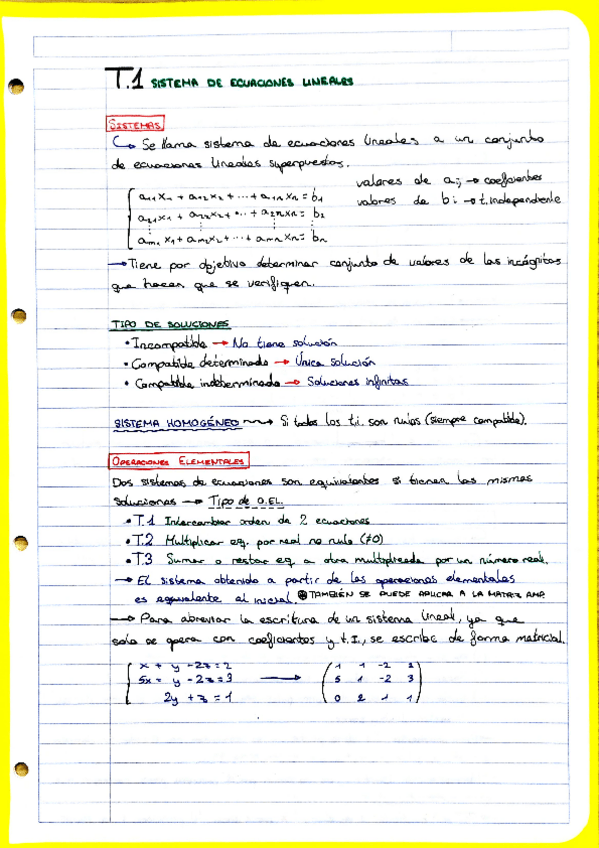 T.1 SISTEMA DE ECUACIONES LINEALES
SISTEMAS
↳ Se llama sistema de ecuaciones lineales a un conjunto
de ecuaciones lineales superpuestos.
a11x1 + a12x2 + ... + a1nxn = b1
a21x1 + a22x2 + ... + a2nxn = b2
am1x1 + am2x2 + ... + amnxn = bn
valores de aij → coeficientes
valores de bi → t. independiente
→ Tiene por objetivo determinar conjunto de valores de las incógnitas
que hacen que se verifiquen.
TIPO DE SOLUCIONES
• Incompatible → No tiene solución
• Compatible determinado → Única solución
• Compatible indeterminado → Soluciones infinitas
SISTEMA HOMOGÉNEO → Si todos los t.i. son nulos (siempre compatible).
OPERACIONES ELEMENTALES
Dos sistemas de ecuaciones son equivalentes si tienen las mismas
soluciones → Tipo de O.EL.
• T.1 Intercambiar orden de 2 ecuaciones
• T.2 Multiplicar eq. por real no nulo (≠0)
• T.3 Sumar o restar eq. a otra multiplicada por un número real.
→ El sistema obtenido a partir de las operaciones elementales
es equivalente al inicial. TAMBIÉN SE PUEDE APLICAR A LA MATRIZ AMP.
→ Para abreviar la escritura de un sistema lineal, ya que
solo se opera con coeficientes y t.I., se escribe de forma matricial.
x + y - 2z = 2 → 1 1 -2 2
5x = y - 2z = 3 5 1 -2 3
2y + z = 1 0 2 1 1